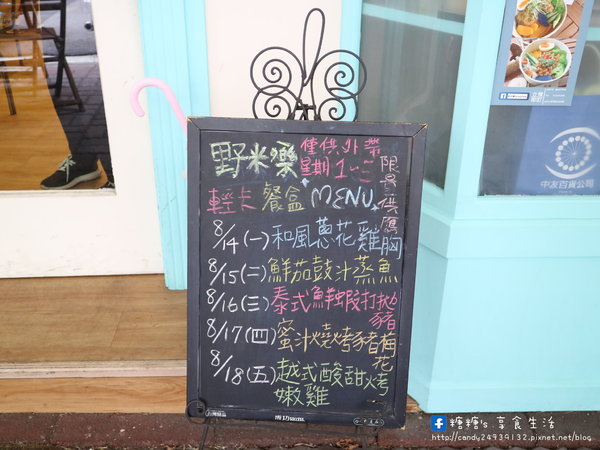 野米樂
僅供外帶
星期1~5
限量供應
輕卡 餐盒 MENU
8/14(一)和風蔥花雞胸
8/15(二)鮮茄鼓汁蒸魚
8/16(三)泰式鮮蝦打拋豬
8/17(四)蜜汁燒烤豬梅花
8/18(五)越式酸甜烤嫩雞
中友百貨公司
糖糖's 享食生活
http://candy24939132.pixnet.net/blog